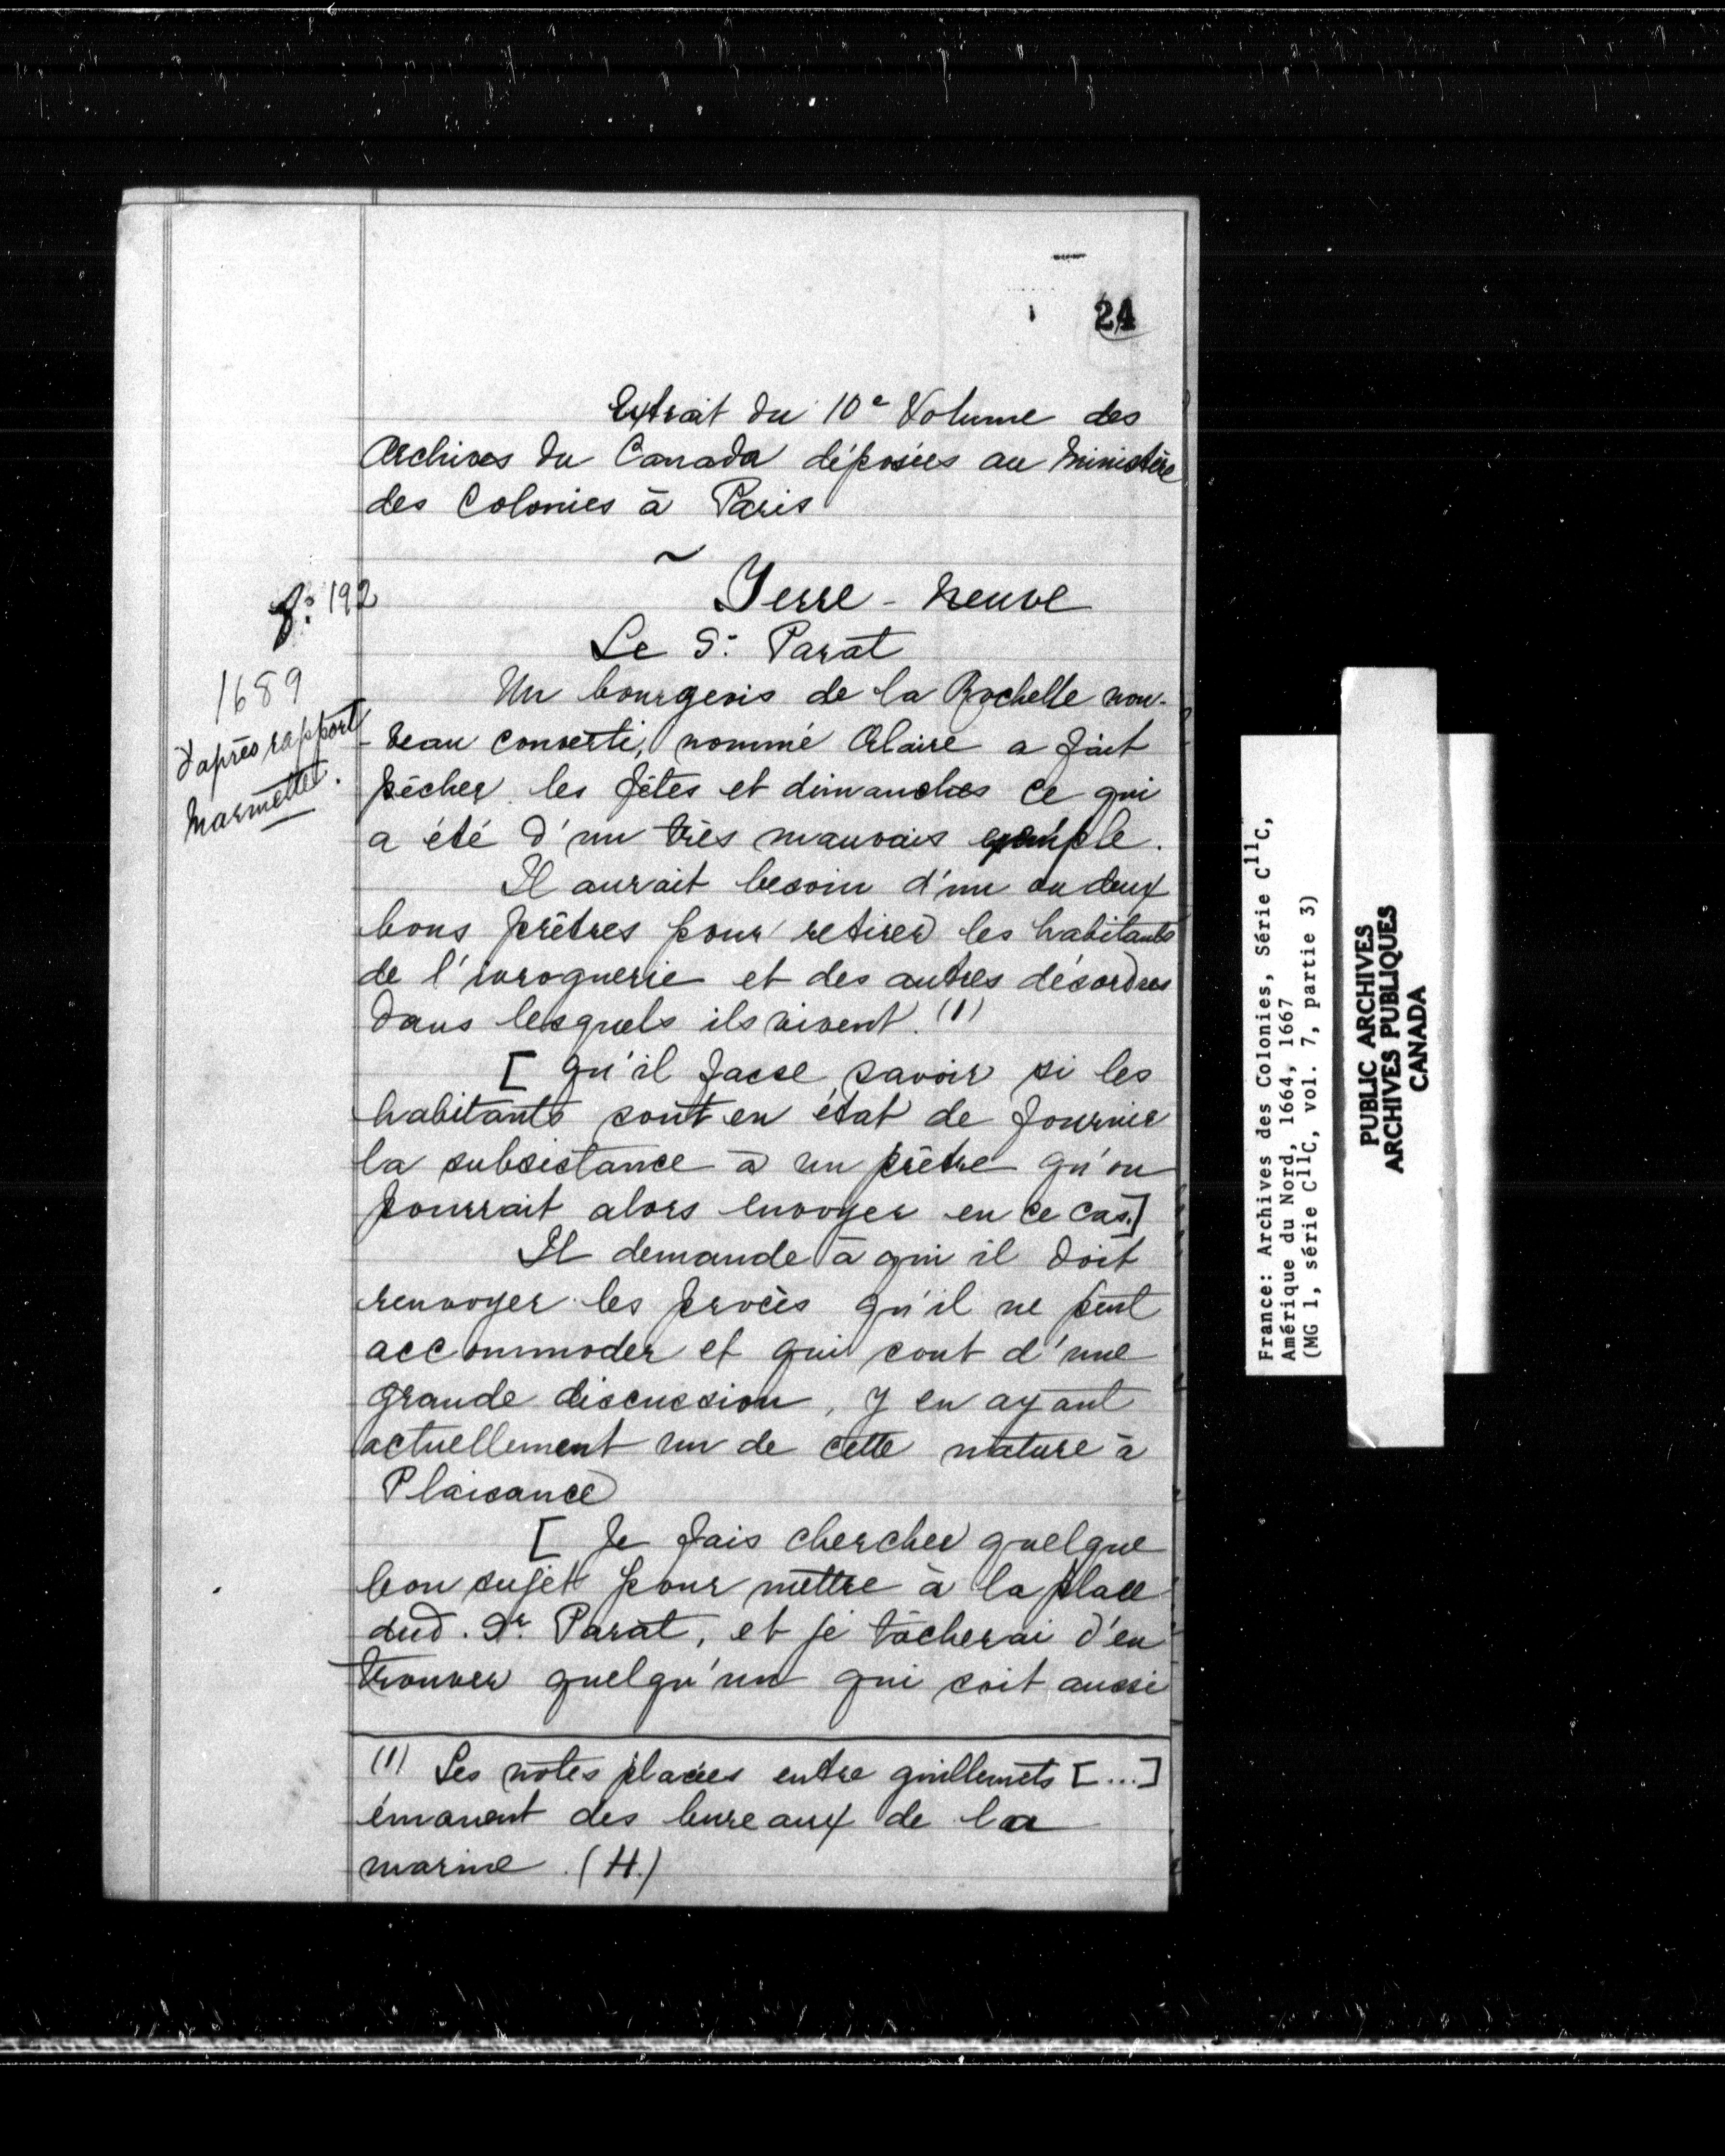 24
Extrait du 10e Volume des
Archives du Canada déposées au Ministère
des Colonies à Paris
~
Terre-Neuve
f: 192
Le Sr. Parat
1689
d'après rapport
Marmette.
Un bourgeois de la Rochelle nou-
-veau converti, nommé Alaire a fait
pêcher les fêtes et dimanches ce qui
a été d'un très mauvais exemple.
Il aurait besoin d'un ou deux
bons prêtres pour retirer les habitants
de l'ivrognerie et des autres désordres
dans lesquels ils vivent. (1)
[ qu'il fasse savoir si les
habitants sont en état de fournir
la subsistance à un prêtre qu'on
pourrait alors envoyer en ce cas.]
Il demande à qui il doit
renvoyer les procès qu'il ne peut
accommoder et qui sont d'une
grande discussion, y en ayant
actuellement un de cette nature à
Plaisance
[ Je fais chercher quelque
bon sujet pour mettre à la place
dud. Sr. Parat, et je tâcherai d'en
trouver quelqu'un qui soit aussi
(1) Les notes placées entre guillemets [...]
émanent des bureaux de la
marine. (H.)
France: Archives des Colonies, Série C11C,
Amérique du Nord, 1664, 1667
(MG 1, série C11C, vol. 7, partie 3)
PUBLIC ARCHIVES
ARCHIVES PUBLIQUES
CANADA